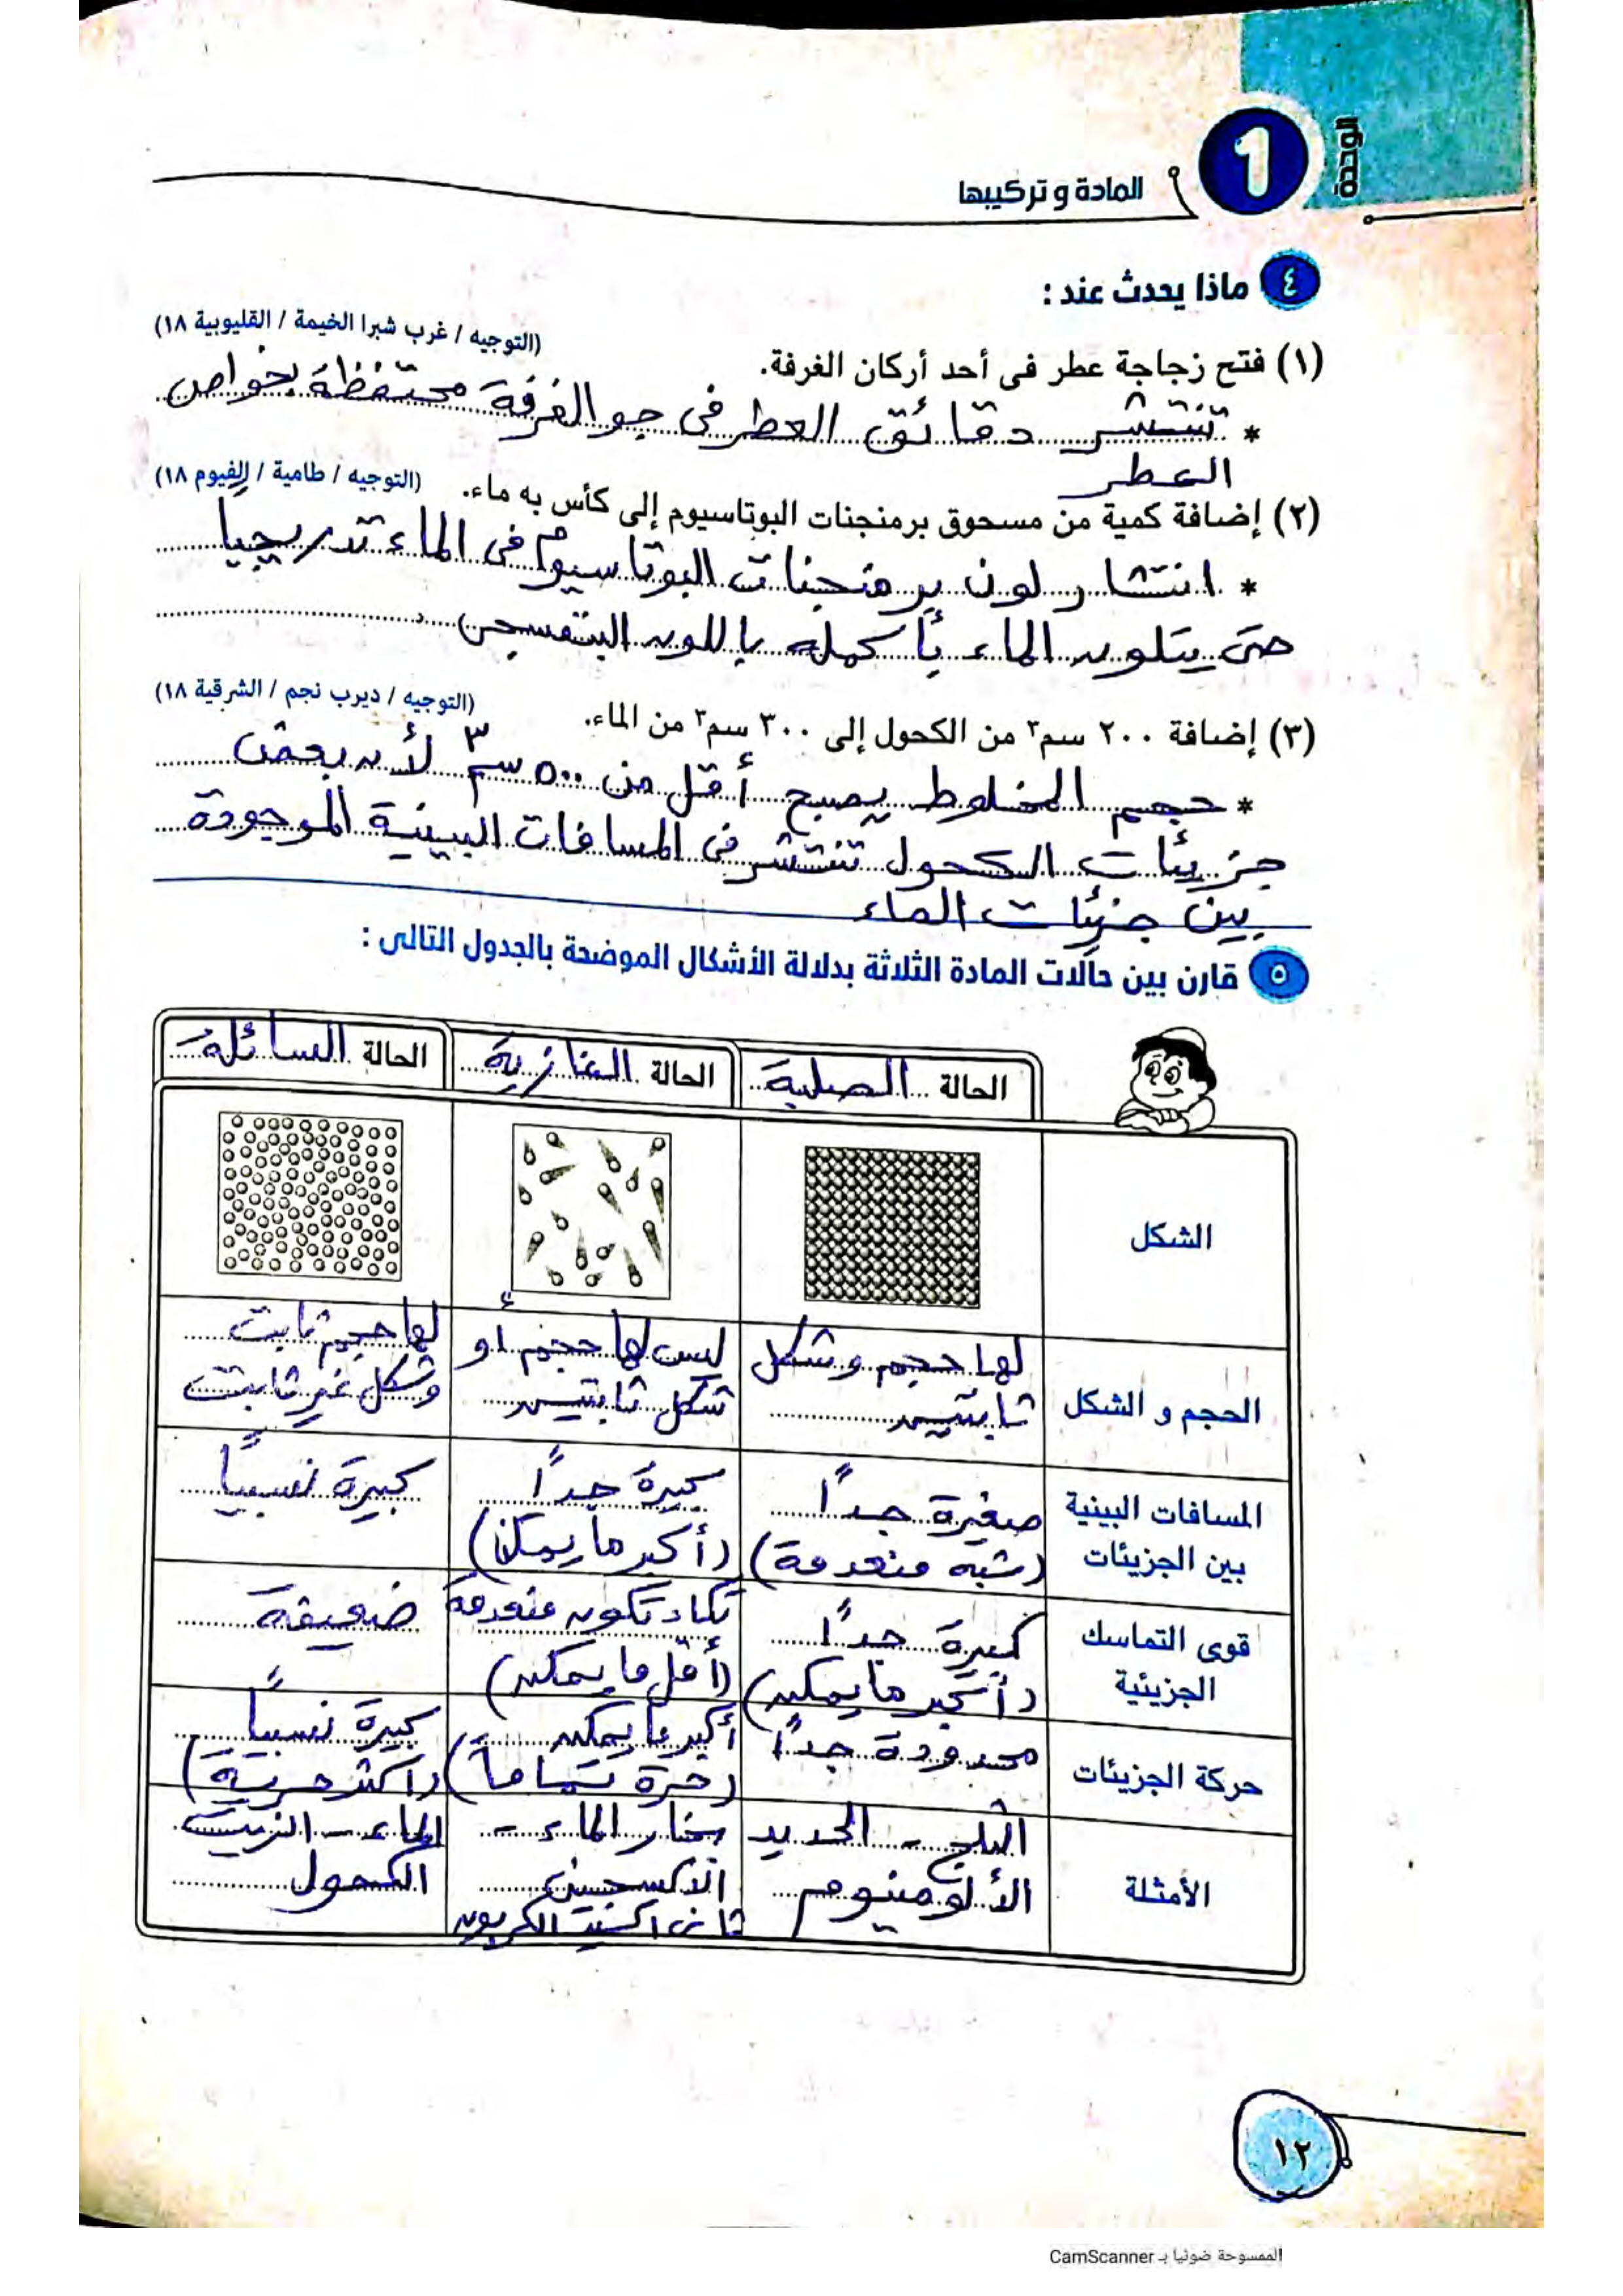 الوحدة
1
المادة و تركيبها
٤ ماذا يحدث عند :
(١) فتح زجاجة عطر فى أحد أركان الغرفة. (التوجيه / غرب شبرا الخيمة / القليوبية ١٨)
* تنتشر دقائق العطر فى جو الغرفة محتفظة بخواص
العطر
(٢) إضافة كمية من مسحوق برمنجنات البوتاسيوم إلى كأس به ماء. (التوجيه / طامية / الفيوم ١٨)
* انتشار لون برمنجنات البوتاسيوم فى الماء تدريجياً
حتى يتلون الماء بأكمله باللون البنفسجى
(٣) إضافة ٢٠٠ سم٣ من الكحول إلى ٣٠٠ سم٣ من الماء. (التوجيه / ديرب نجم / الشرقية ١٨)
* حجم المخلوط يصبح أقل من ٥٠٠ سم٣ لأن بعض
جزيئات الكحول تنتشر فى المسافات البينية الموجودة
بين جزيئات الماء
٥ قارن بين حالات المادة الثلاثة بدلالة الأشكال الموضحة بالجدول التالى :
الحالة الصلبة الحالة الغازية الحالة السائلة
الشكل
الحجم و الشكل
لها حجم وشكل
ثابتين
ليس لها حجم أو
شكل ثابتين
لها حجم ثابت
وشكل غير ثابت
المسافات البينية
بين الجزيئات
صغيرة جداً
(شبه منعدمة)
كبيرة جداً
(أكبر ما يمكن)
كبيرة نسبياً
قوى التماسك
الجزيئية
كبيرة جداً
(أكبر ما يمكن)
تكاد تكون منعدمة
(أقل ما يمكن)
ضعيفة
حركة الجزيئات
محدودة جداً
أكبر ما يمكن
(حرة تماماً)
كبيرة نسبياً
(أكثر حرية)
الأمثلة
الثلج - الحديد
الألومنيوم
بخار الماء -
الأكسجين
ثانى أكسيد الكربون
الماء - الزيت
الكحول
١٢
الممسوحة ضوئيا بـ CamScanner